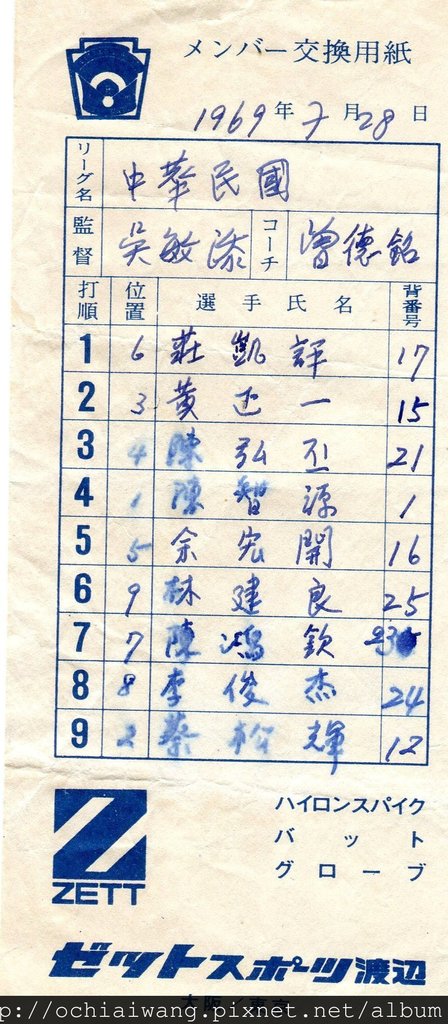 メンバー交換用紙
1969年7月28日
リーグ名 中華民國
監督 吳敏添 コーチ 曾德銘
打順 位置 選手氏名 背番号
1 6 莊凱評 17
2 3 黃正一 15
3 4 陳弘丕 21
4 1 陳智源 1
5 5 余宏開 16
6 9 林建良 25
7 7 陳鴻欽
8 8 李俊杰 24
9 2 蔡松輝 12
ZETT
ハイロンスパイク
バット
グローブ
ゼットスポーツ渡辺
p://ochiaiwang.pixnet.net/album